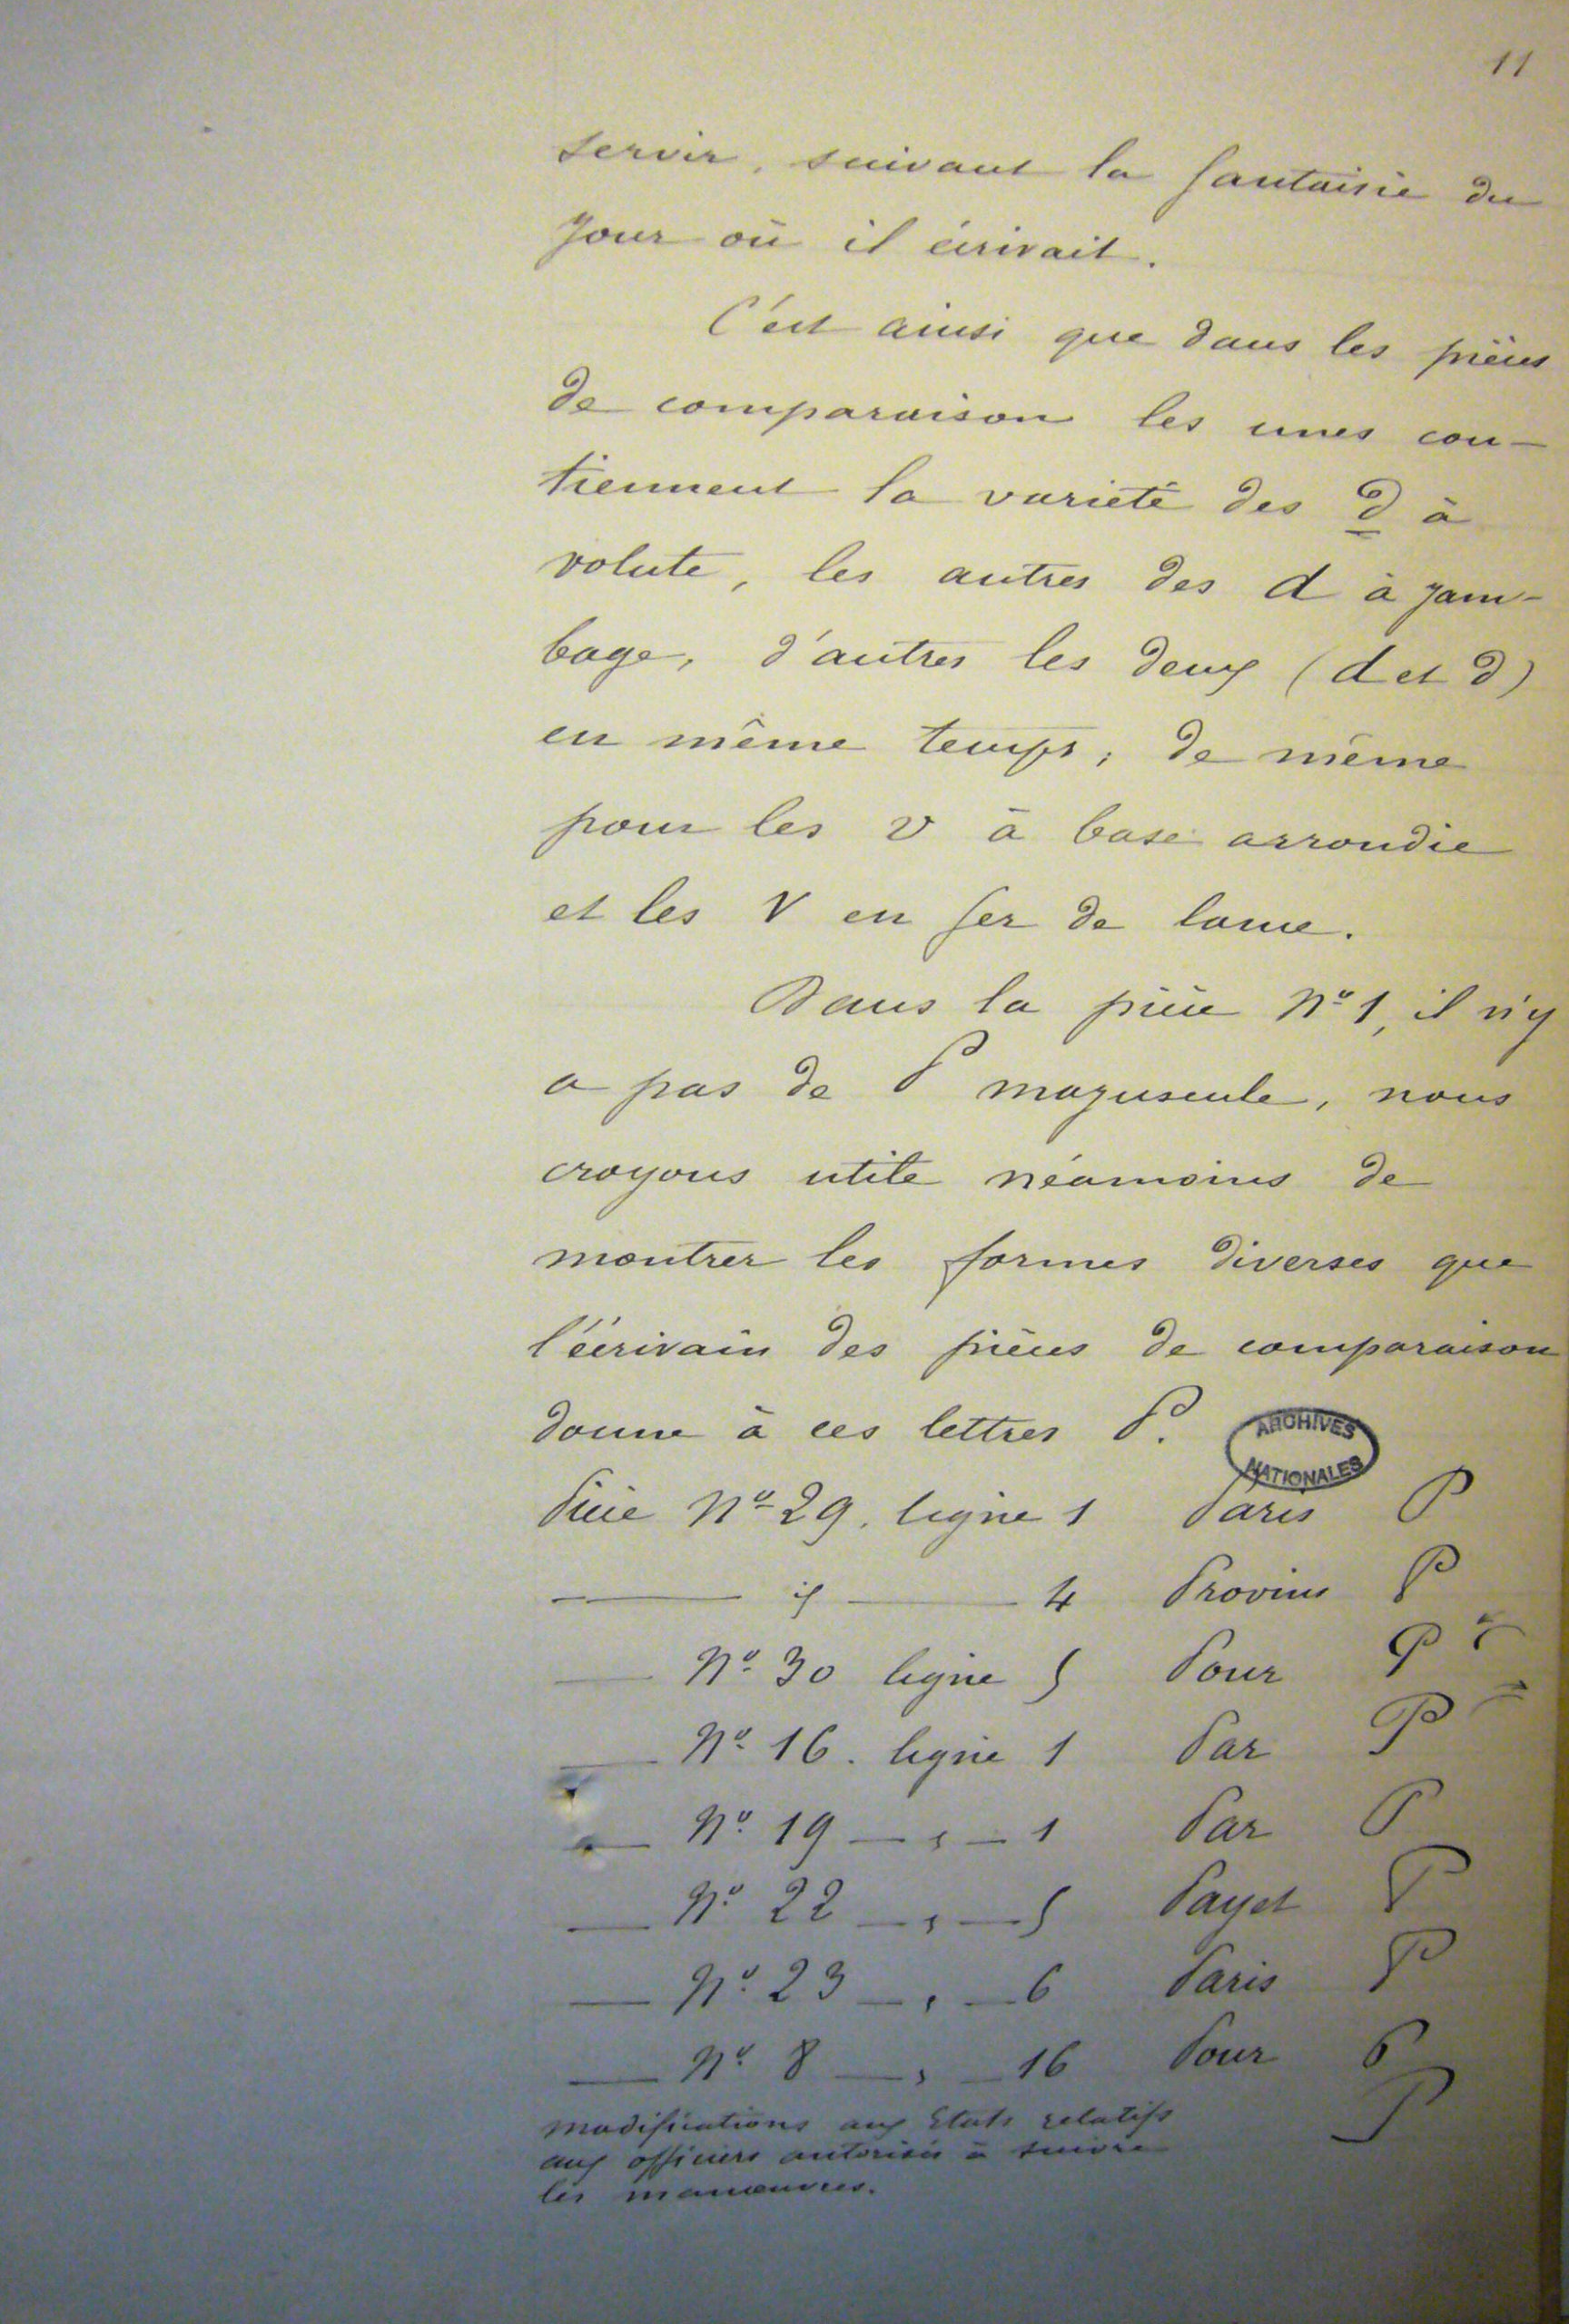 11
servir, suivant la fantaisie du
jour où il écrivait.
C'est ainsi que dans les pièces
de comparaison les unes con-
tiennent la variété des d à
volute, les autres des d à jam-
bage, d'autres les deux (d et d)
en même temps; de même
pour les v à base arrondie
et les V en fer de lance.
Dans la pièce No 1, il n'y
a pas de P majuscule, nous
croyons utile néamoins de
montrer les formes diverses que
l'écrivain des pièces de comparaison
donne à ces lettres P.
ARCHIVES NATIONALES
Pièce No 29. ligne 1 Paris P
— id — 4 Provins P
— No 30 ligne 5 Pour P
— No 16. ligne 1 Par P
— No 19 — , — 1 Par P
— No 22 — , — 5 Payet P
— No 23 — , — 6 Paris P
— No 8 — , — 16 Pour P
modifications aux Etats relatifs P
aux officiers autorisés à suivre
les manœuvres.